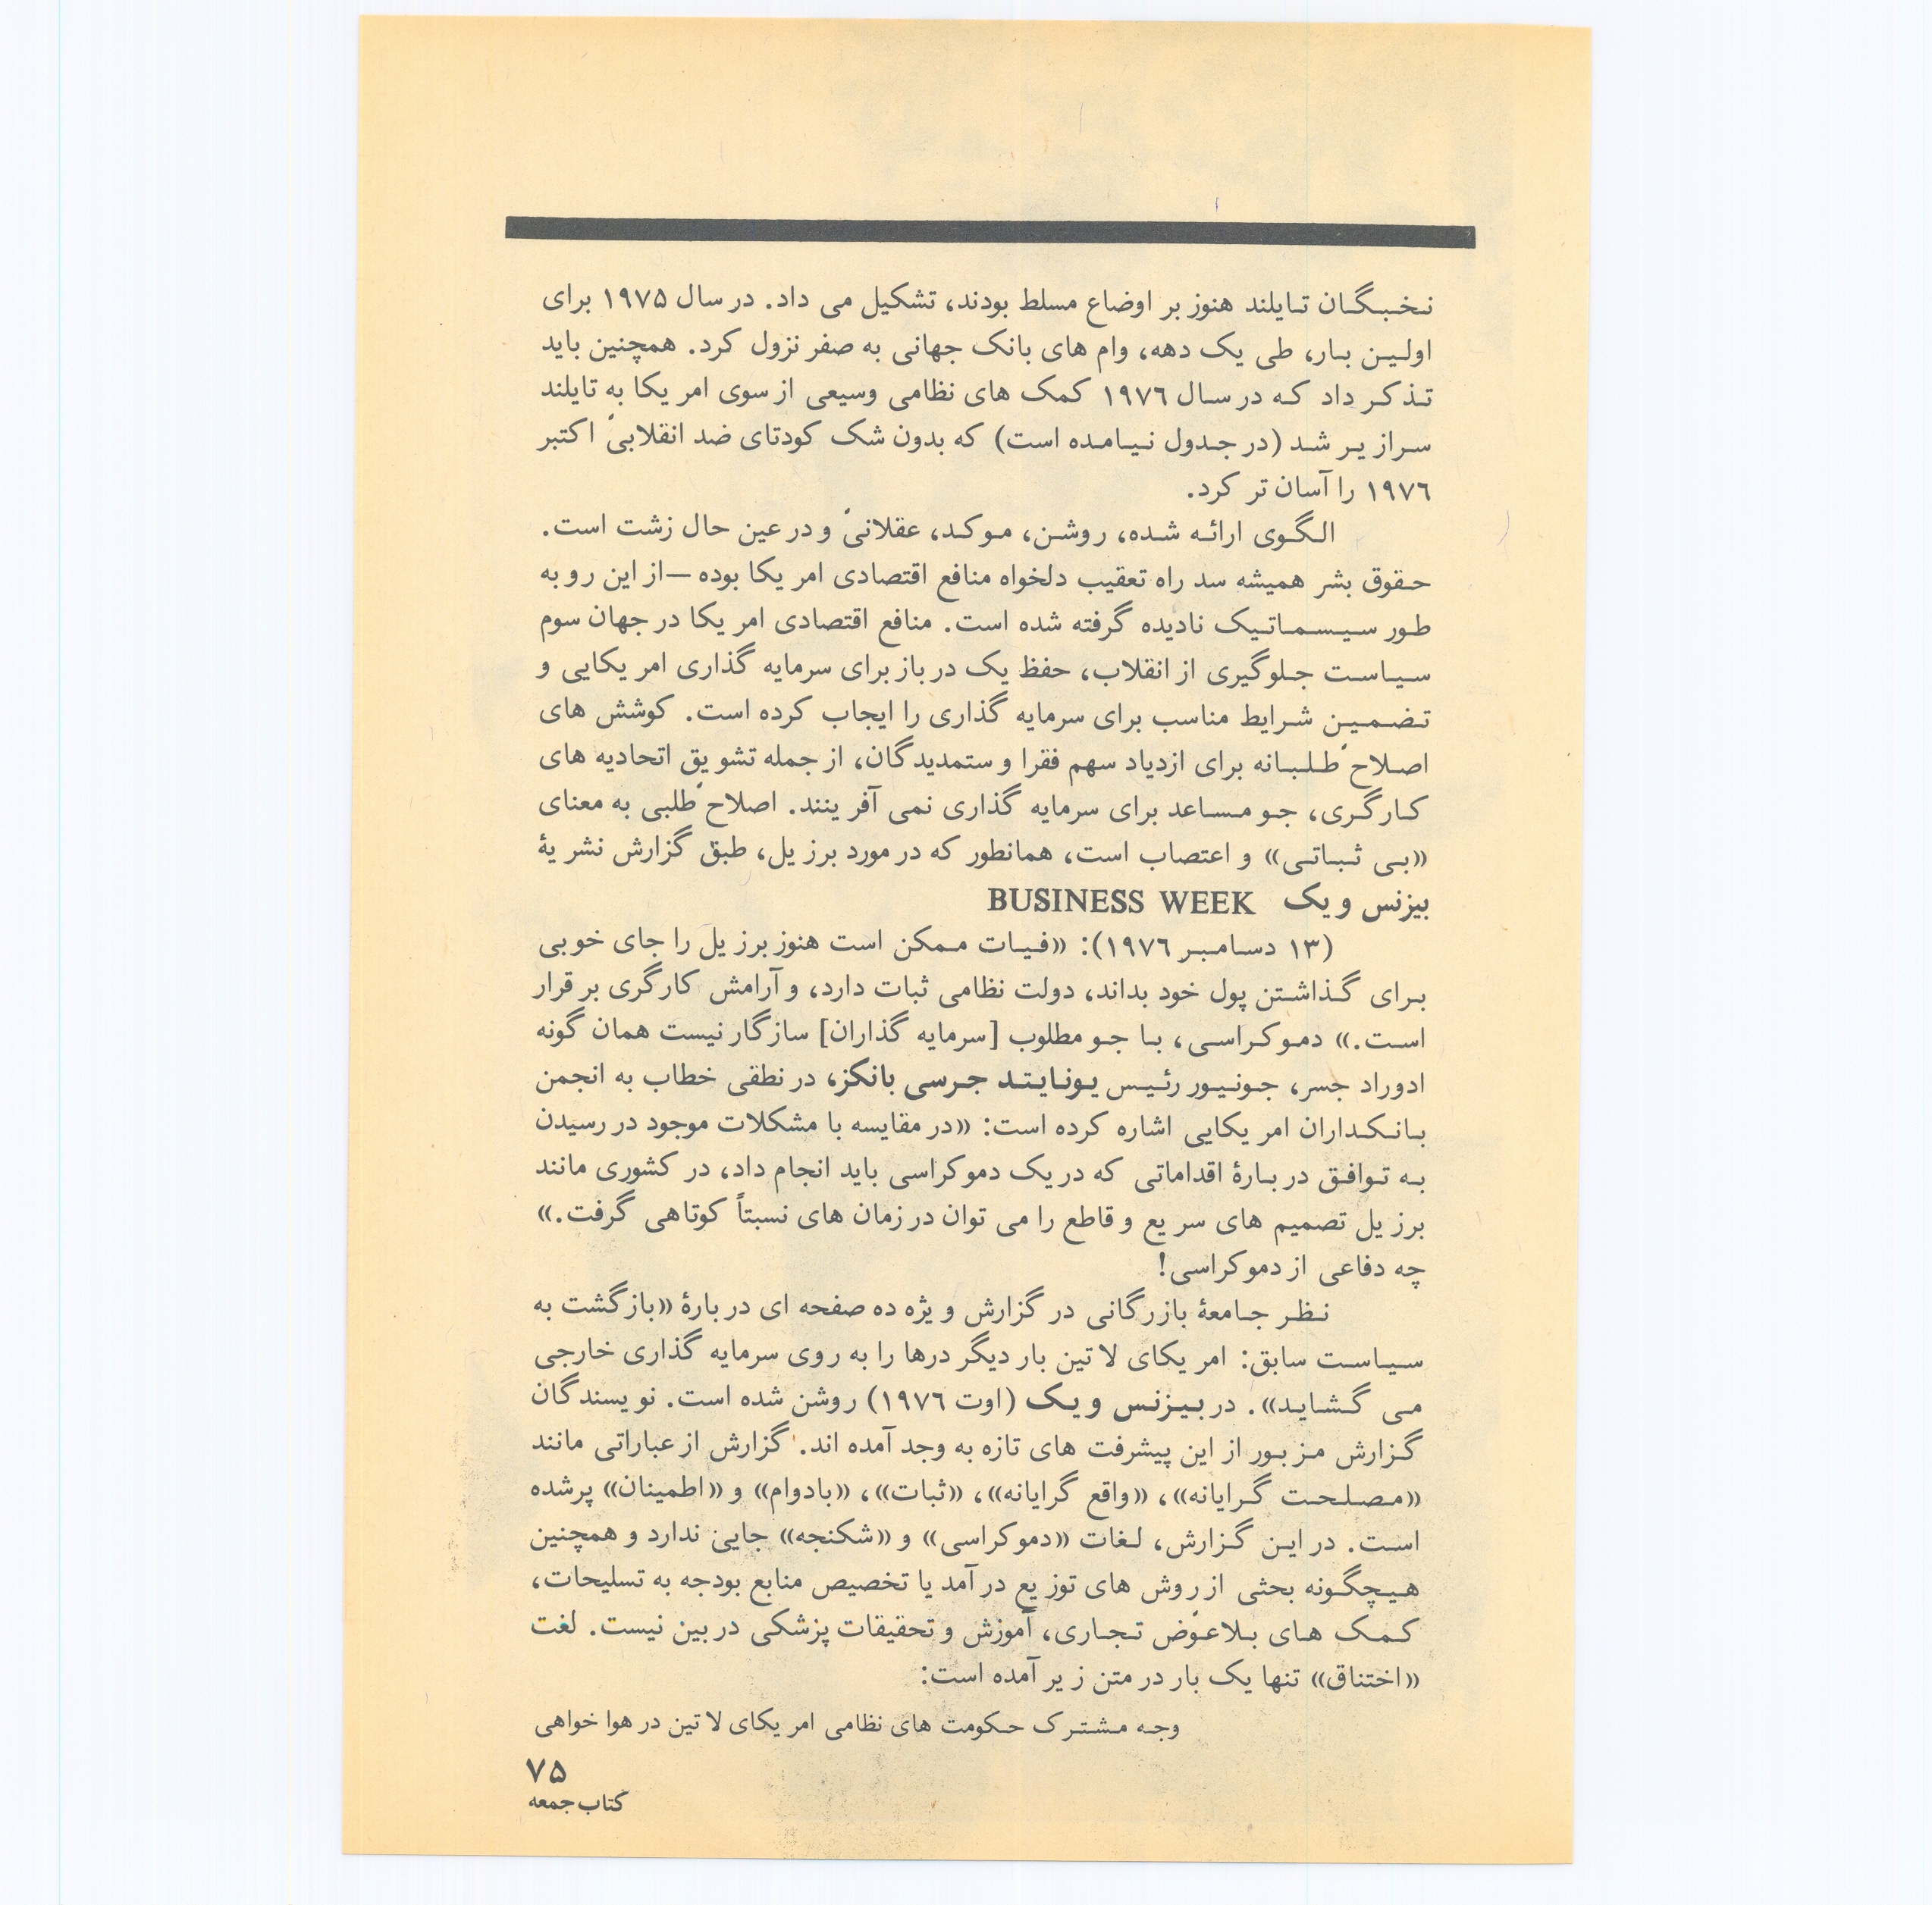 نخبگان تایلند هنوز بر اوضاع مسلط بودند، تشکیل می داد. در سال ۱۹۷۵ برای
اولین بار، طی یک دهه، وام های بانک جهانی به صفر نزول کرد. همچنین باید
تذکر داد که در سال ۱۹۷۶ کمک های نظامی وسیعی از سوی امریکا به تایلند
سرازیر شد (در جدول نیامده است) که بدون شک کودتای ضد انقلابیْ اکتبر
۱۹۷۶ را آسان تر کرد.
الگوی ارائه شده، روشن، موکد، عقلانیْ و در عین حال زشت است.
حقوق بشر همیشه سد راه تعقیب دلخواه منافع اقتصادی امریکا بوده —از این رو به
طور سیسماتیک نادیده گرفته شده است. منافع اقتصادی امریکا در جهان سوم
سیاست جلوگیری از انقلاب، حفظ یک در باز برای سرمایه گذاری امریکایی و
تضمین شرایط مناسب برای سرمایه گذاری را ایجاب کرده است. کوشش های
اصلاحْ طلبانه برای ازدیاد سهم فقرا و ستمدیدگان، از جمله تشویق اتحادیه های
کارگری، جو مساعد برای سرمایه گذاری نمی آفرینند. اصلاحْ طلبی به معنای
«بی ثباتی» و اعتصاب است، همانطور که در مورد برزیل، طبق گزارش نشریهٔ
بیزنس ویک BUSINESS WEEK
(۱۳ دسامبر ۱۹۷۶): «فیات ممکن است هنوز برزیل را جای خوبی
برای گذاشتن پول خود بداند، دولت نظامی ثبات دارد، و آرامش کارگری برقرار
است.» دموکراسی، با جو مطلوب [سرمایه گذاران] سازگار نیست همان گونه
ادوراد جسر، جونیور رئیس یونایتد جرسی بانکز، در نطقی خطاب به انجمن
بانکداران امریکایی اشاره کرده است: «در مقایسه با مشکلات موجود در رسیدن
به توافق دربارهٔ اقداماتی که در یک دموکراسی باید انجام داد، در کشوری مانند
برزیل تصمیم های سریع و قاطع را می توان در زمان های نسبتاً کوتاهی گرفت.»
چه دفاعی از دموکراسی!
نظر جامعهٔ بازرگانی در گزارش ویژه ده صفحه ای دربارهٔ «بازگشت به
سیاست سابق: امریکای لاتین بار دیگر درها را به روی سرمایه گذاری خارجی
می گشاید». در بیزنس ویک (اوت ۱۹۷۶) روشن شده است. نویسندگان
گزارش مزبور از این پیشرفت های تازه به وجد آمده اند. گزارش از عباراتی مانند
«مصلحت گرایانه»، «واقع گرایانه»، «ثبات»، «بادوام» و «اطمینان» پرشده
است. در این گزارش، لغات «دموکراسی» و «شکنجه» جایی ندارد و همچنین
هیچگونه بحثی از روش های توزیع درآمد یا تخصیص منابع بودجه به تسلیحات،
کمک های بلاعوْض تجاری، آموزش و تحقیقات پزشکی در بین نیست. لغت
«اختناق» تنها یک بار در متن زیر آمده است:
وجه مشترک حکومت های نظامی امریکای لاتین در هوا خواهی
۷۵
کتاب جمعه